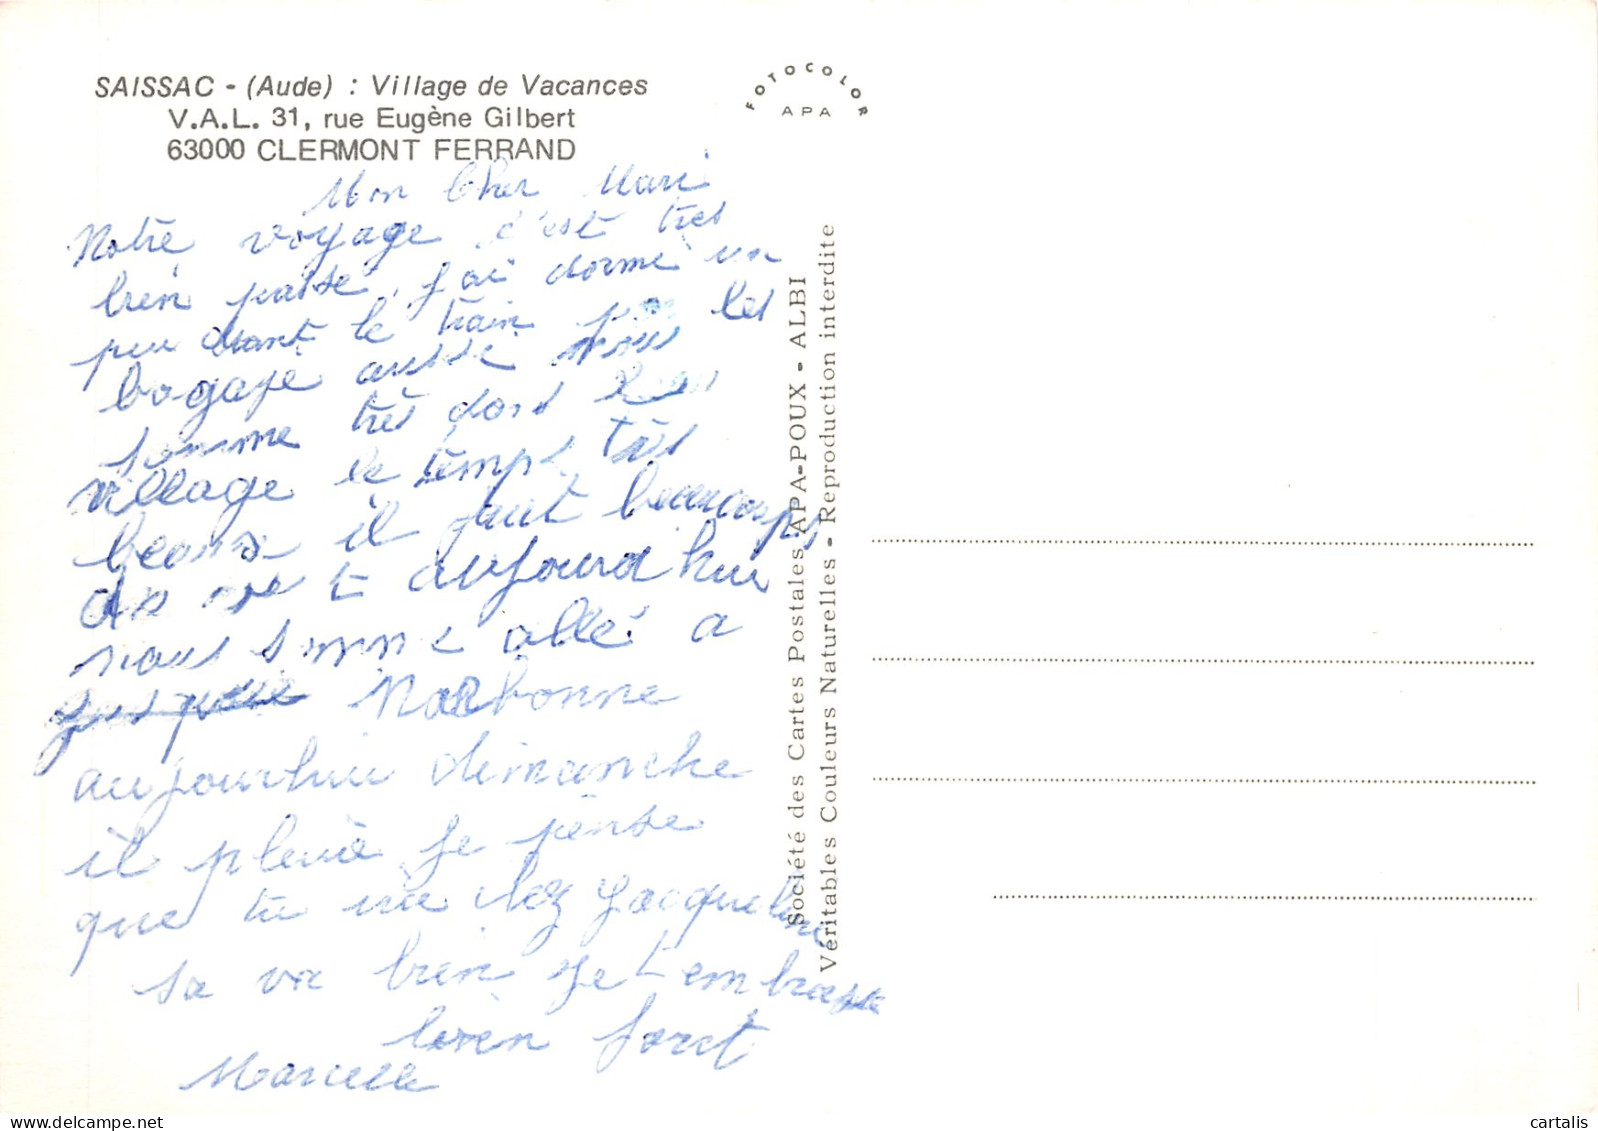 SAISSAC - (Aude) : Village de Vacances
V.A.L. 31, rue Eugène Gilbert
63000 CLERMONT FERRAND
FOTOCOLOR
APA
Mon Cher Mari
Notre voyage c'est très
bien passé, j'ai dormé un
peu dant le train les
bagage aussé nous
somme très dans le
village le temps très
beaux il faut beaucoups
de t aujourd hui
nous somme allé a
jusque Narbonne
aujourhui dimanche
il pleuie je pense
que tu chez Jacqueline
sa va bien je t embrasse
bien fort
Marcelle
Société des Cartes Postales APA-POUX - ALBI
Véritables Couleurs Naturelles - Reproduction interdite
cartalis